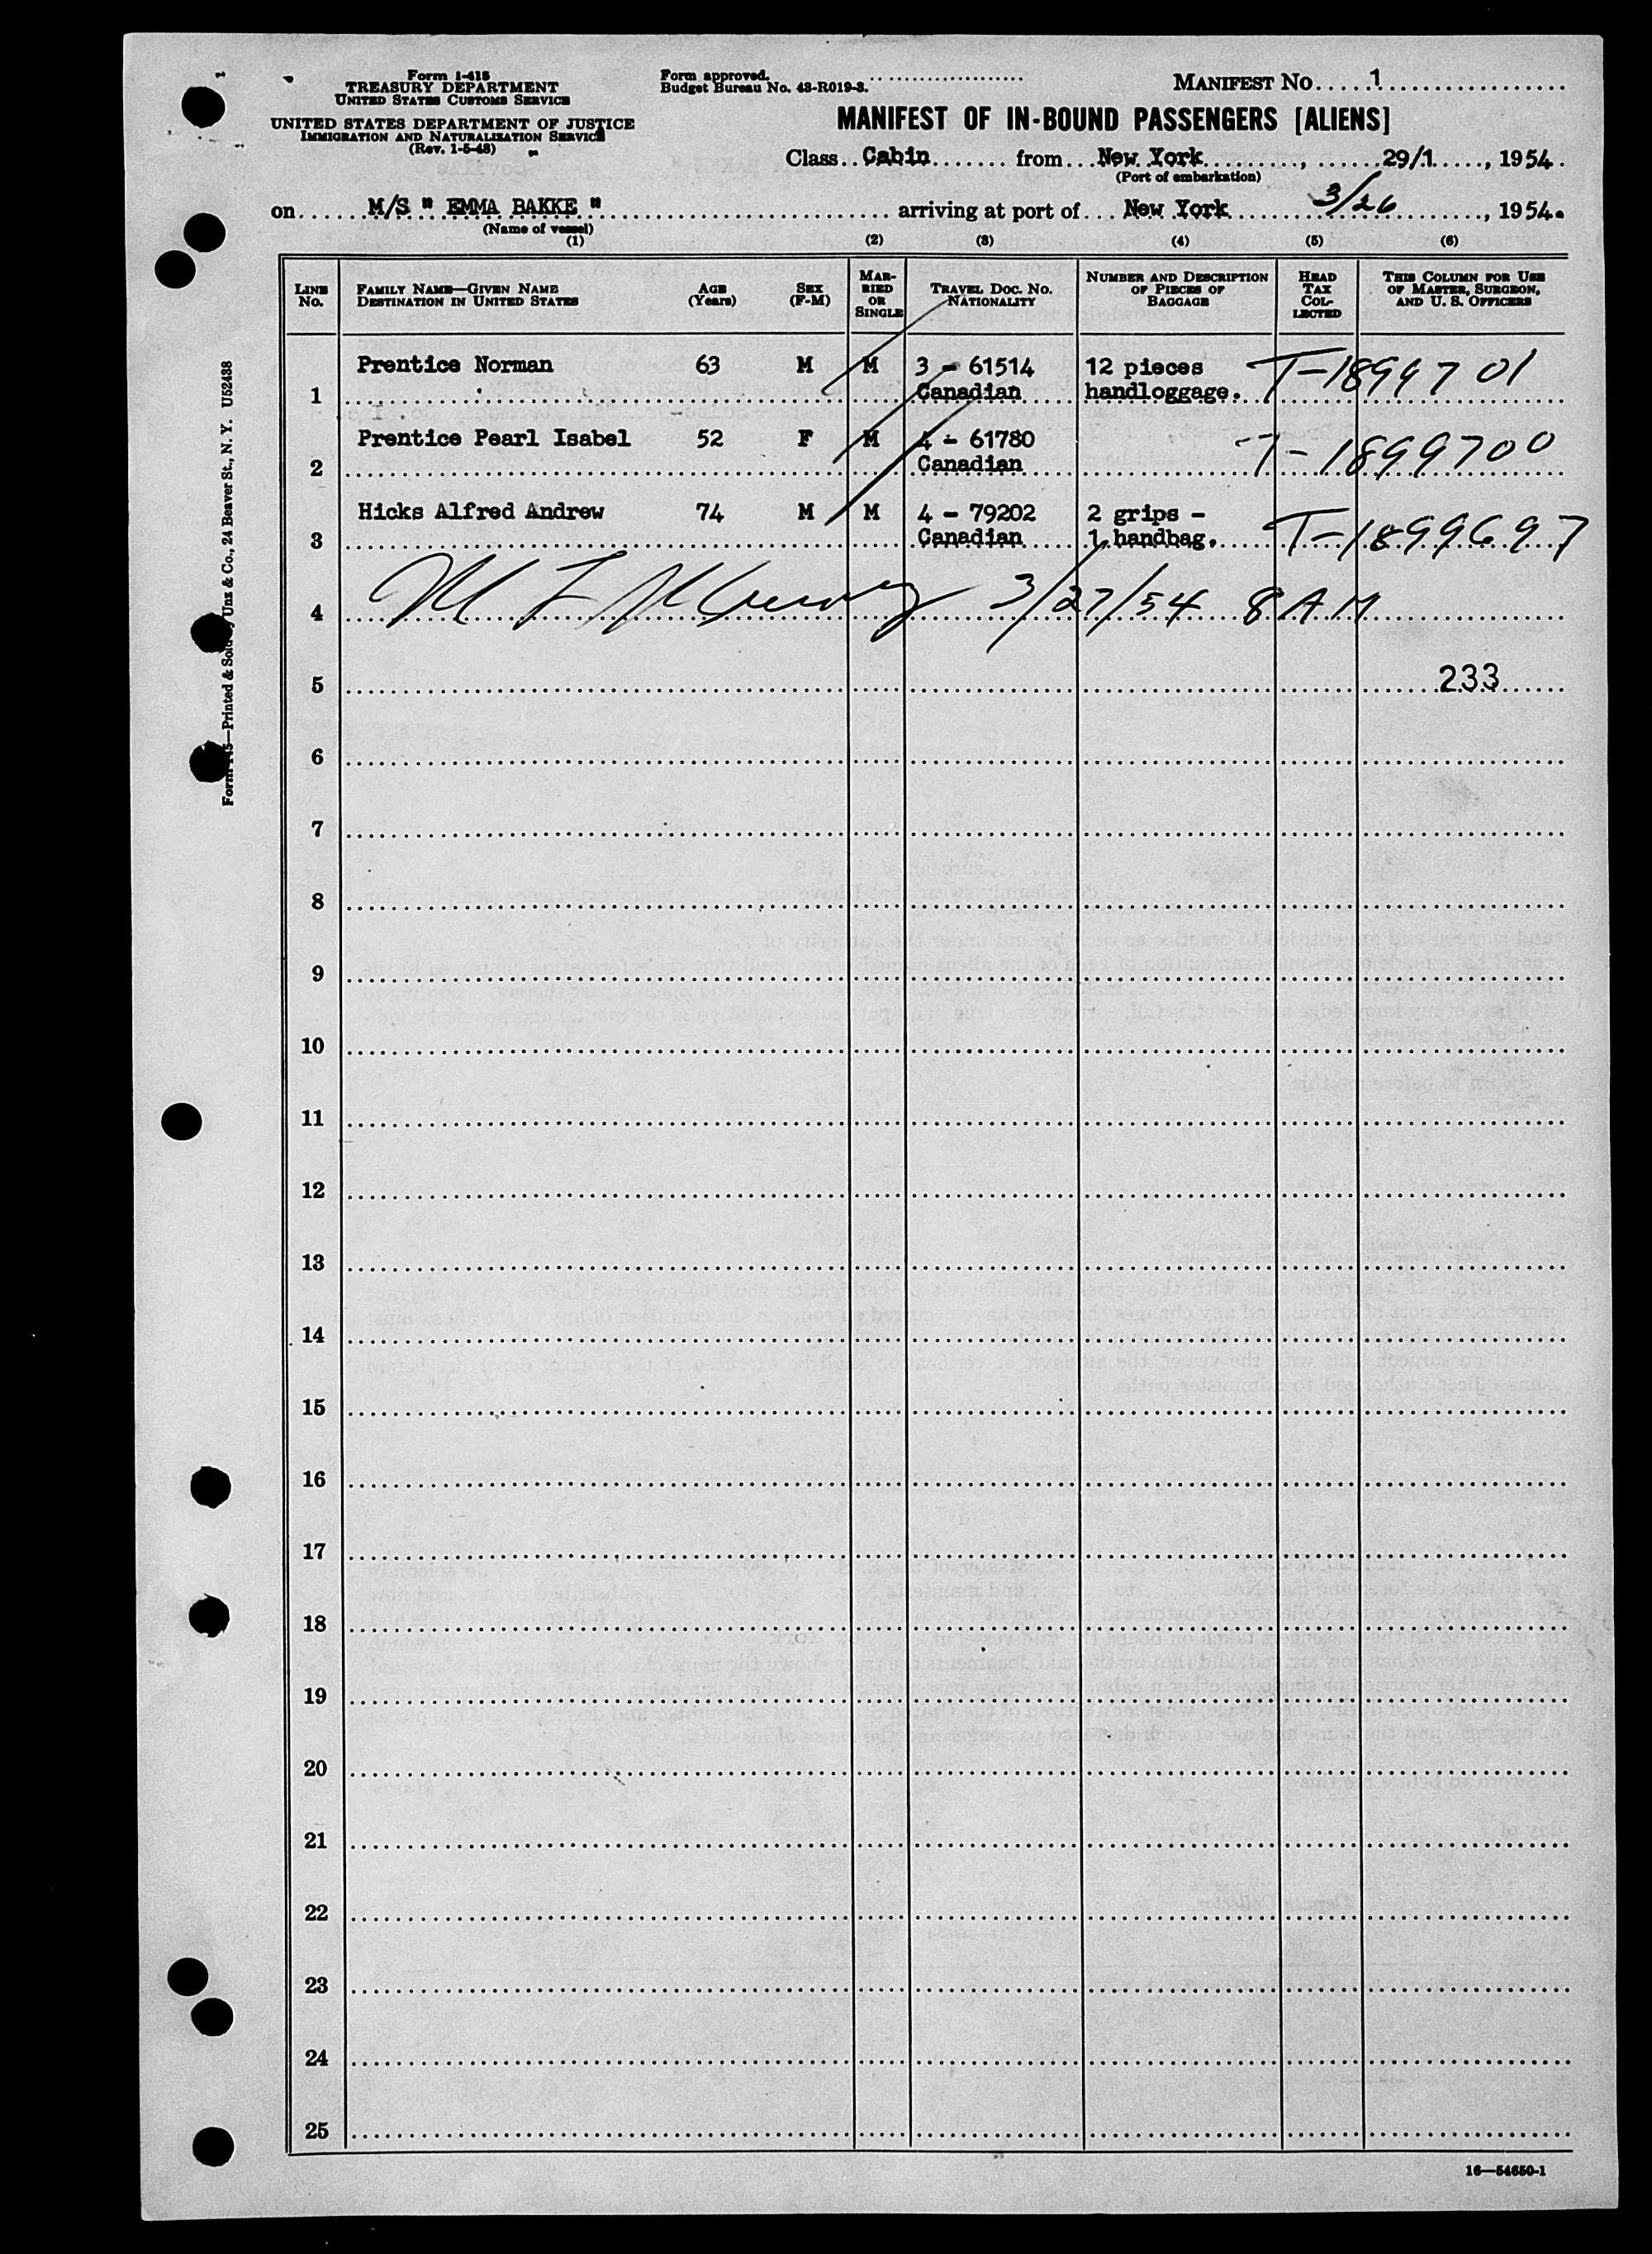 Form I-415
TREASURY DEPARTMENT
UNITED STATES CUSTOMS SERVICE
UNITED STATES DEPARTMENT OF JUSTICE
IMMIGRATION AND NATURALIZATION SERVICE
(Rev. 1-5-48)
Form approved.
Budget Bureau No. 43-R019-3.
MANIFEST NO. 1
MANIFEST OF IN-BOUND PASSENGERS [ALIENS]
Class Cabin from New York, 29/1, 1954.
(Port of embarkation)
on M/S " EMMA BAKKE " arriving at port of New York 3/26, 1954.
(Name of vessel)
(1) (2) (3) (4) (5) (6)
LINE NO.
FAMILY NAME—GIVEN NAME
DESTINATION IN UNITED STATES
AGE
(Years)
SEX
(F-M)
MARRIED
OR
SINGLE
TRAVEL DOC. NO.
NATIONALITY
NUMBER AND DESCRIPTION
OF PIECES OF
BAGGAGE
HEAD
TAX
COLLECTED
THIS COLUMN FOR USE
OF MASTER, SURGEON,
AND U. S. OFFICERS
Prentice Norman 63 M M 3 - 61514 12 pieces T-1899701
1 Canadian handloggage.
Prentice Pearl Isabel 52 F M 4 - 61780 T-1899700
2 Canadian
Hicks Alfred Andrew 74 M M 4 - 79202 2 grips - T-1899697
3 Canadian 1 handbag.
4 3/27/54 8 AM
5 233
6
7
8
9
10
11
12
13
14
15
16
17
18
19
20
21
22
23
24
25
16—54650-1
Printed & Sold by Unz & Co., 24 Beaver St., N. Y. U52438